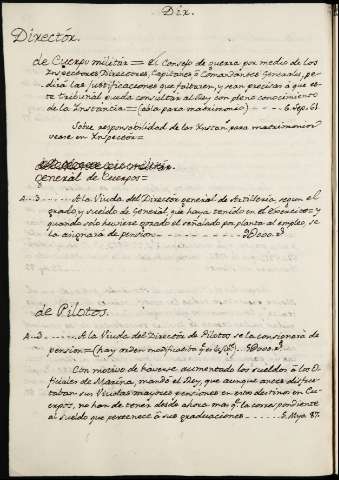 Dix.
Director.
de Cuerpo militar = El Consejo de guerra por medio de los
Inspectores Directores, Capitanes ò Comandantes Generales, pe-
dirá las justificaciones que faltaren, y sean precisas á que es-
te Tribunal pueda consultar al Rey con pleno conocimiento
de la Instancia = (abla para matrimonio) - - - 6. Sep. 61
Sobre responsabilidad de las Instan.s para matrimonios
vease en Inspector =
general de Cuerpos =
A..3 A la Viuda del Director general de Artilleria, segun el
grado y sueldo de General, que haya tenido en el Exercito = y
quando solo huviere gozado el señalado por planta al empleo, se
la asignará de pension
de Pilotos.
A..3 A la Viuda del Director de Pilotos se la consignará de
pension = (hay orden
Con motivo de haverse aumentado los sueldos à los O-
ficiales de Marina, mandó el Rey, que aunque antes disfru-
taban sus Viudas mayores pensiones en otros destinos en Cu-
erpos, no han de tener desde ahora mas q.e la correspondiente
al sueldo que pertenece à sus graduaciones - - - - 5. Mayo 87.